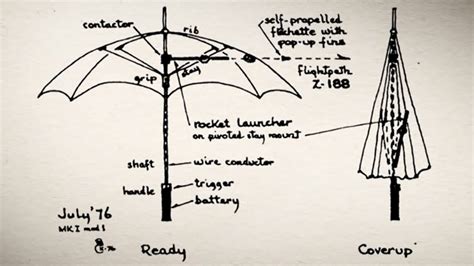 contactor
rib
self-propelled
flechette with
pop-up fins
flightpath
Z-188
grip
stay
rocket launcher
on pivoted stay mount
shaft
wire conductor
handle
trigger
battery
July '76
MK I mod 1
Ready
Coverup